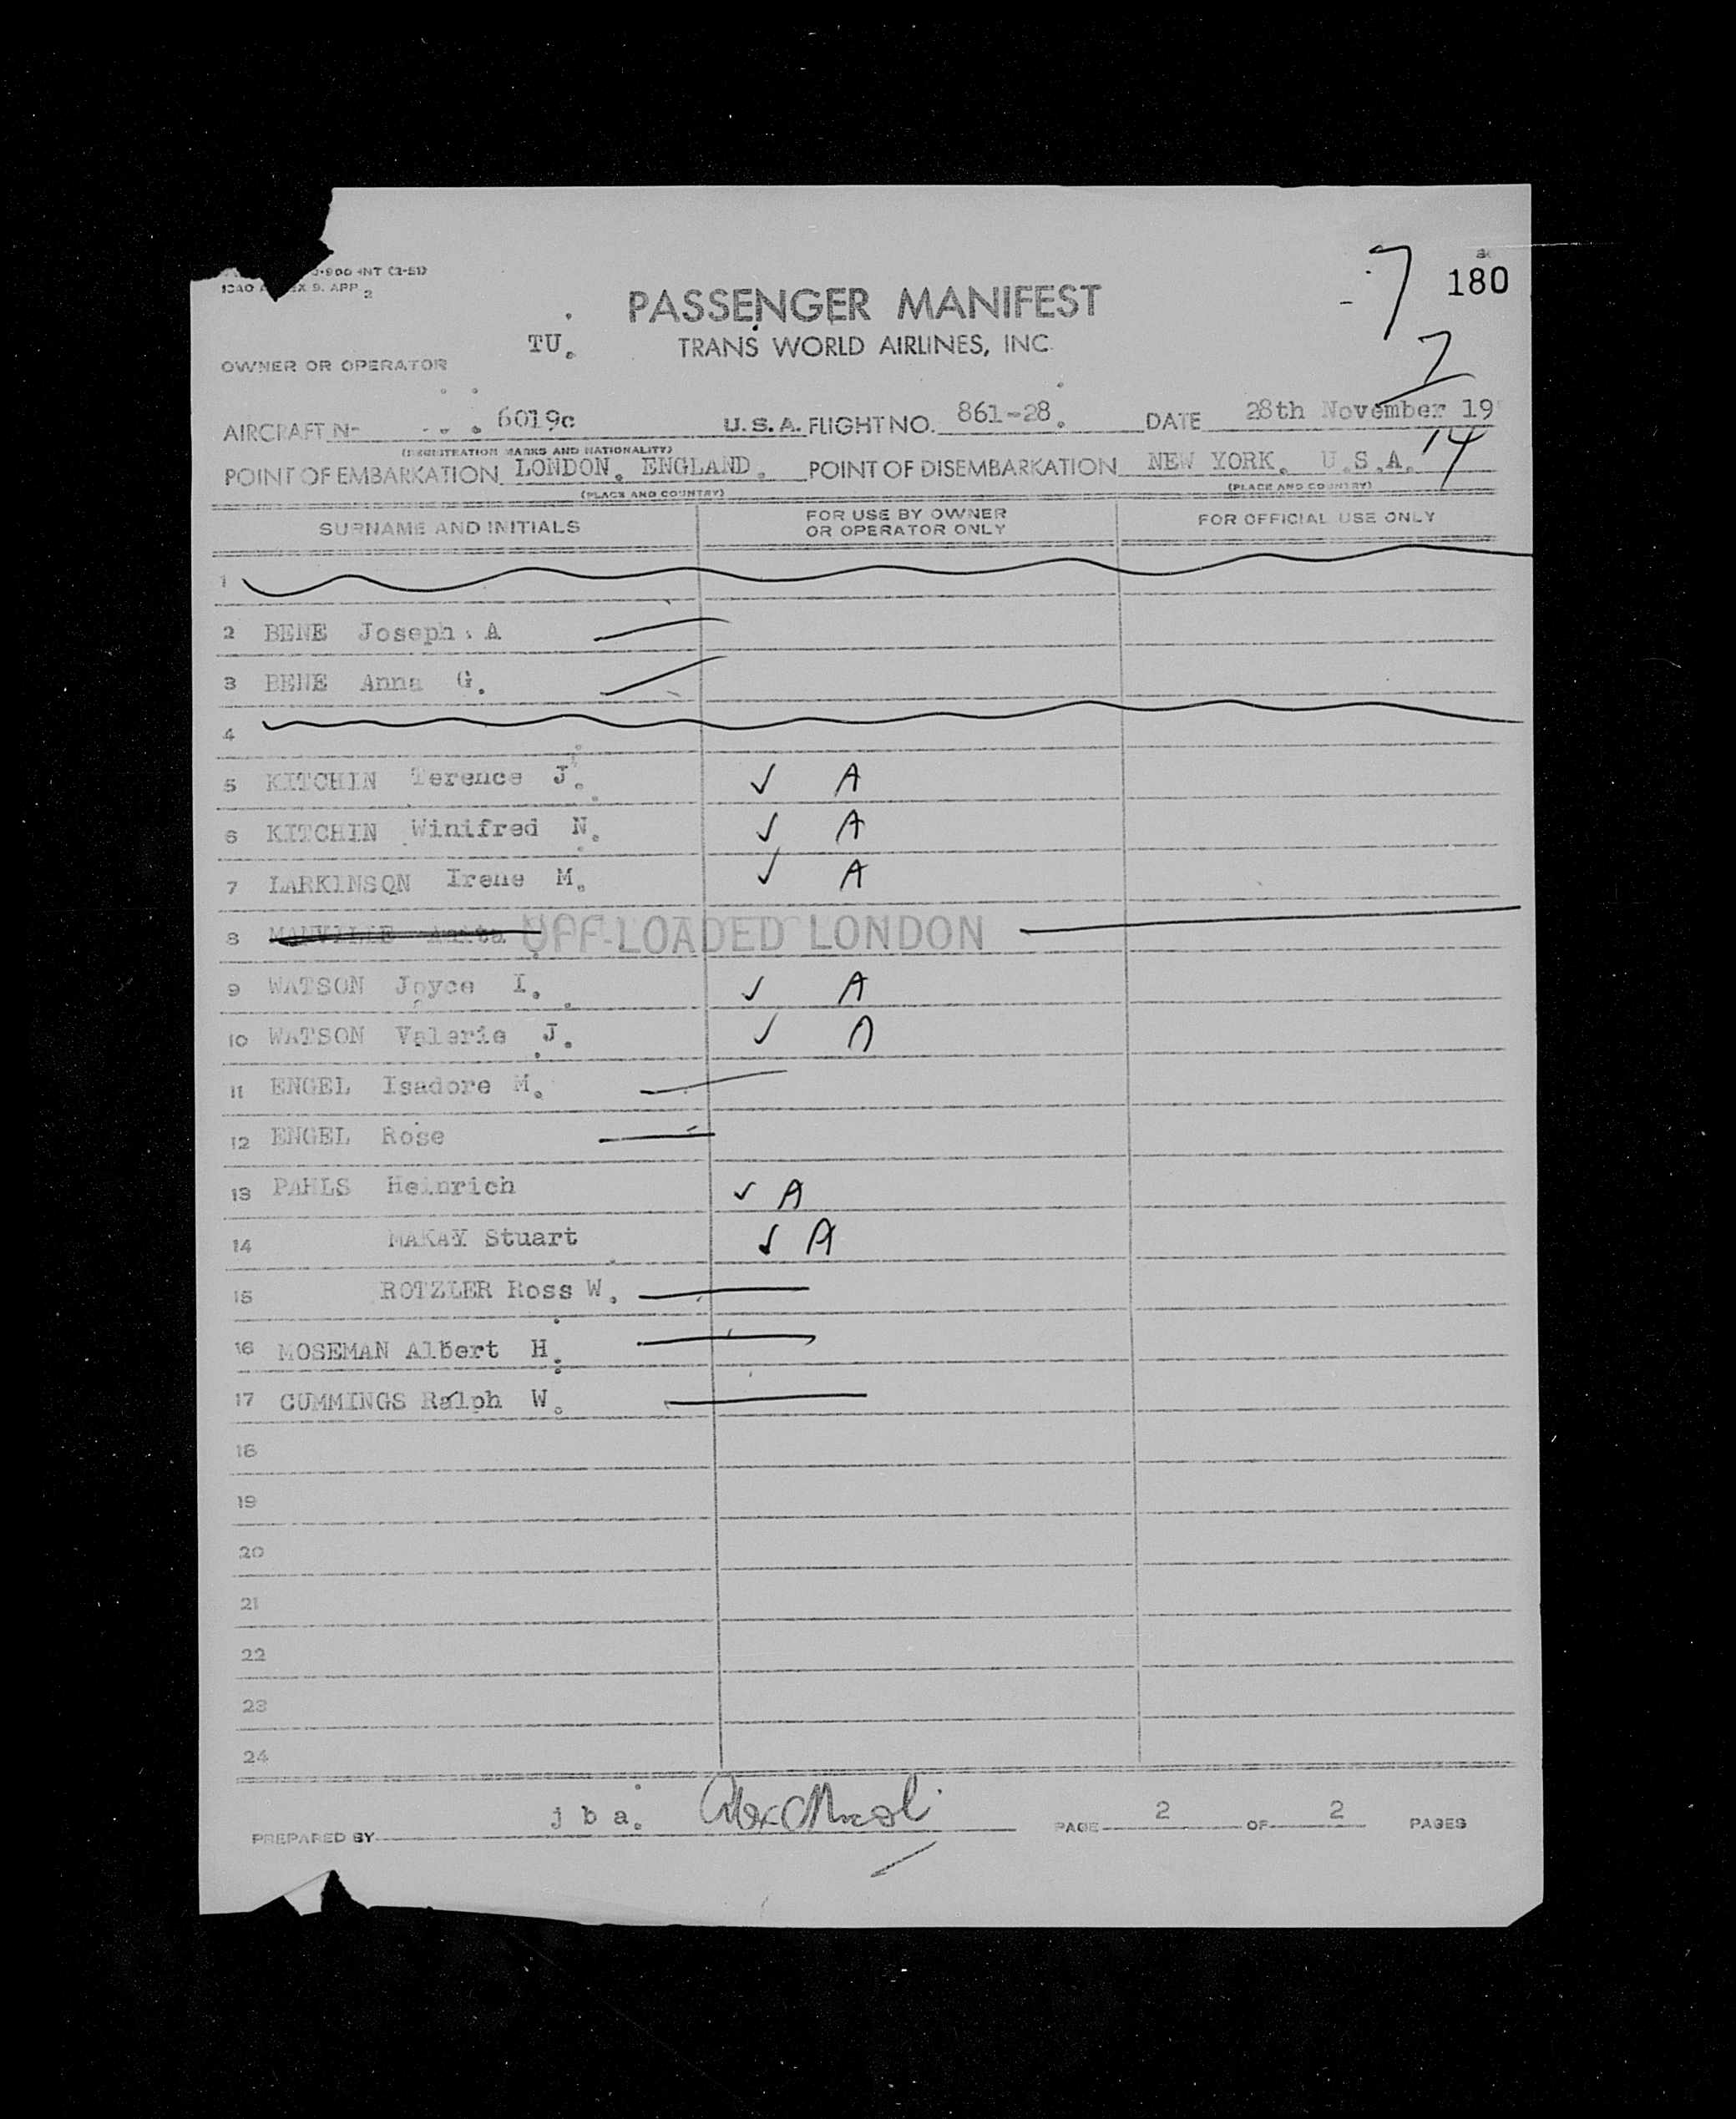 -900 INT (2-51)
ICAO ANNEX 9. APP 2
7
180
PASSENGER MANIFEST
TU.
TRANS WORLD AIRLINES, INC
OWNER OR OPERATOR
7
AIRCRAFT No 6019c U.S.A. FLIGHT NO. 861-28. DATE 28th November 19
(REGISTRATION MARKS AND NATIONALITY)
14
POINT OF EMBARKATION LONDON. ENGLAND. POINT OF DISEMBARKATION NEW YORK. U.S.A.
(PLACE AND COUNTRY) (PLACE AND COUNTRY)
SURNAME AND INITIALS FOR USE BY OWNER OR OPERATOR ONLY FOR OFFICIAL USE ONLY
1
2 BENE Joseph. A
3 BENE Anna G.
4
5 KITCHIN Terence J. ✓ A
6 KITCHIN Winifred N. ✓ A
7 LARKINSON Irene M. ✓ A
8 MANVILLE Anita OFF-LOADED LONDON
9 WATSON Joyce I. ✓ A
10 WATSON Valerie J. ✓ A
11 ENGEL Isadore M.
12 ENGEL Rose
13 PAHLS Heinrich ✓ A
14 MAKAY Stuart ✓ A
15 ROTZLER Ross W.
16 MOSEMAN Albert H.
17 CUMMINGS Ralph W.
18
19
20
21
22
23
24
PREPARED BY j b a. PAGE 2 OF 2 PAGES